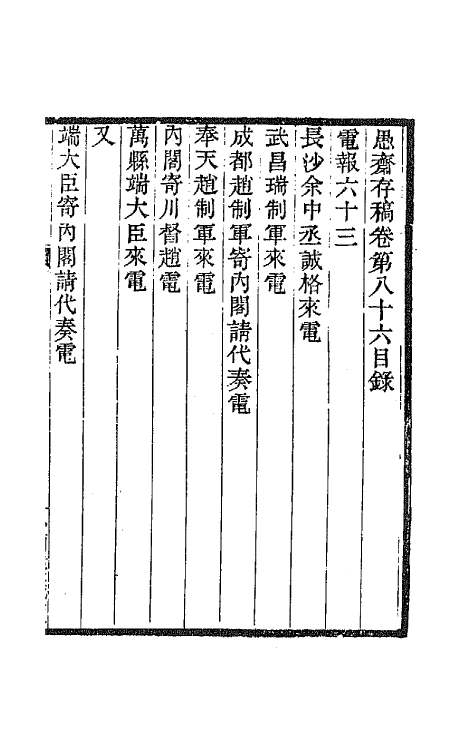 愚齋存稿卷第八十六目錄
電報六十三
長沙余中丞誠格來電
武昌瑞制軍來電
成都趙制軍寄內閣請代奏電
奉天趙制軍來電
內閣寄川督趙電
萬縣端大臣來電
又
端大臣寄內閣請代奏電